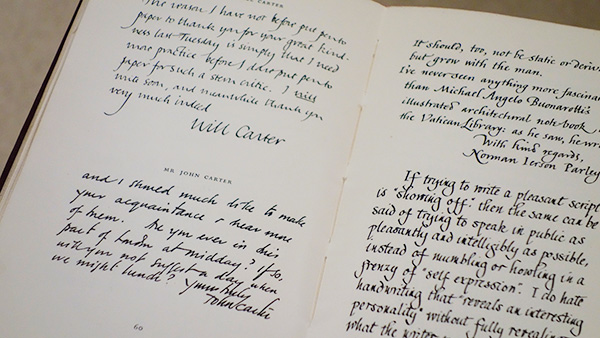 CARTER
The reason I have not before put pen to
paper to thank you for your great kind-
ness last Tuesday is simply that I need
more practice before I dare put pen to
paper for such a stern critic. I will
write soon, and meanwhile thank you
very much indeed
Will Carter
MR JOHN CARTER
and I should much like to make
your acquaintance & hear more
of them. Are you ever in this
part of London at midday? If so,
will you not suggest a day when
we might lunch? Yours truly
John Carter
60
It should, too, not be static or deriv
but grow with the man.
I've never seen anything more fascina
than Michael Angelo Buonarotti's
illustrated architectural note book
the Vatican Library: as he saw, he wr
With kind regards,
Norman Ierson Parley
If trying to write a pleasant scrip
is "showing off" then the same can be
said of trying to speak in public as
pleasantly and intelligibly as possible,
instead of mumbling or howling in a
frenzy of "self expression". I do hate
handwriting that "reveals an interesting
personality" without fully revealin
what the writer